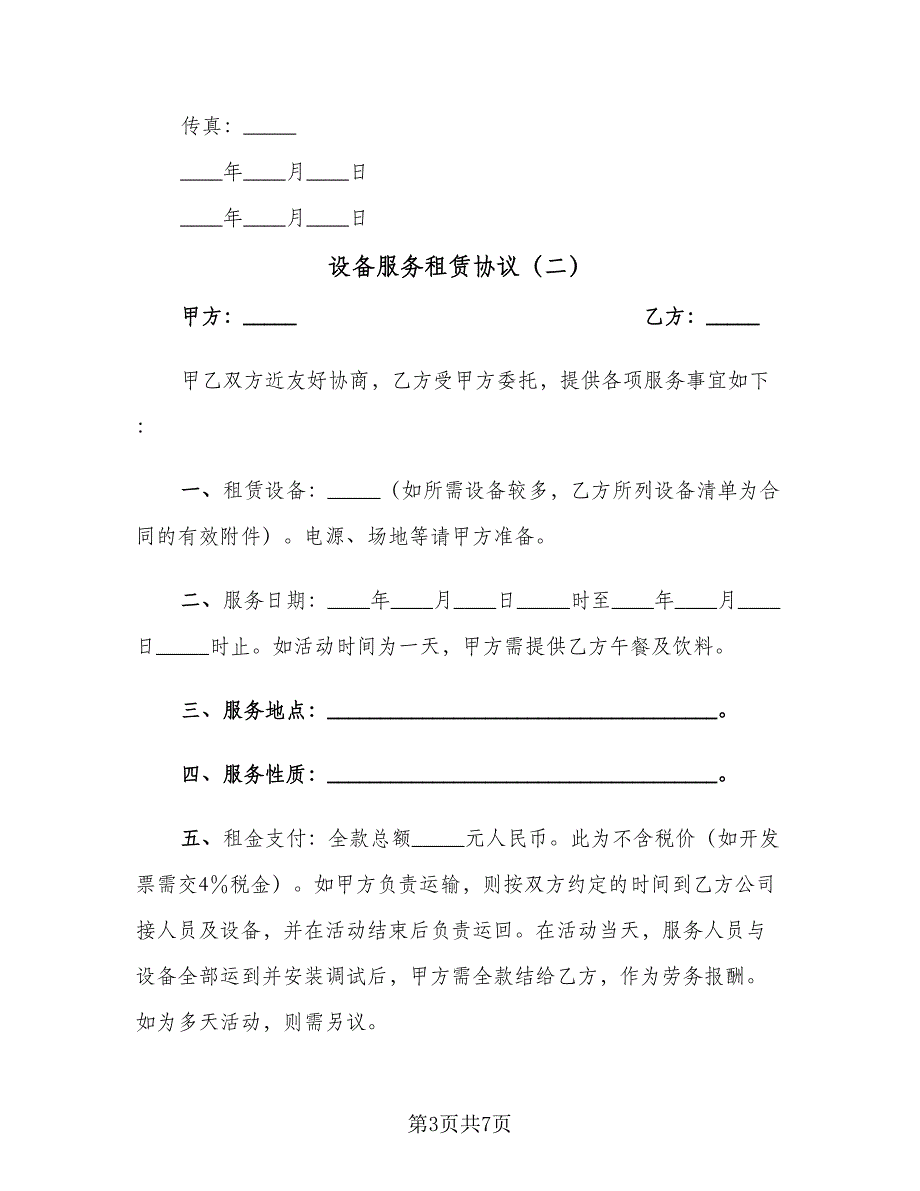 传真：_____
____年____月____日
____年____月____日
设备服务租赁协议（二）
甲方：_____ 乙方：_____
甲乙双方近友好协商，乙方受甲方委托，提供各项服务事宜如下
：
一、租赁设备：_____（如所需设备较多，乙方所列设备清单为合
同的有效附件）。电源、场地等请甲方准备。
二、服务日期：____年____月____日_____时至____年____月____
日_____时止。如活动时间为一天，甲方需提供乙方午餐及饮料。
三、服务地点：_____________________________________。
四、服务性质：_____________________________________。
五、租金支付：全款总额_____元人民币。此为不含税价（如开发
票需交4%税金）。如甲方负责运输，则按双方约定的时间到乙方公司
接人员及设备，并在活动结束后负责运回。在活动当天，服务人员与
设备全部运到并安装调试后，甲方需全款结给乙方，作为劳务报酬。
如为多天活动，则需另议。
第3页共7页